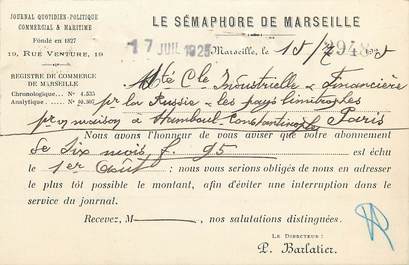 JOURNAL QUOTIDIEN-POLITIQUE
COMMERCIAL & MARITIME
Fondé en 1827
19, RUE VENTURE, 19
REGISTRE DE COMMERCE
DE MARSEILLE
Chronologique... N° 4.535
Analytique
LE SÉMAPHORE DE MARSEILLE
17 JUIL 1925
Marseille, le
Sté Cle Industrielle & Financière
pr la Russie & les pays limitrophes
pr sa maison à Stamboul-Constantinople Paris
Nous avons l'honneur de vous aviser que votre abonnement
de Six mois, f. 95 est échu
le 1er Août ; nous vous serions obligés de nous en adresser
le plus tôt possible le montant, afin d'éviter une interruption dans le
service du journal.
Recevez, M , nos salutations distinguées.
LE DIRECTEUR:
P. Barlatier.